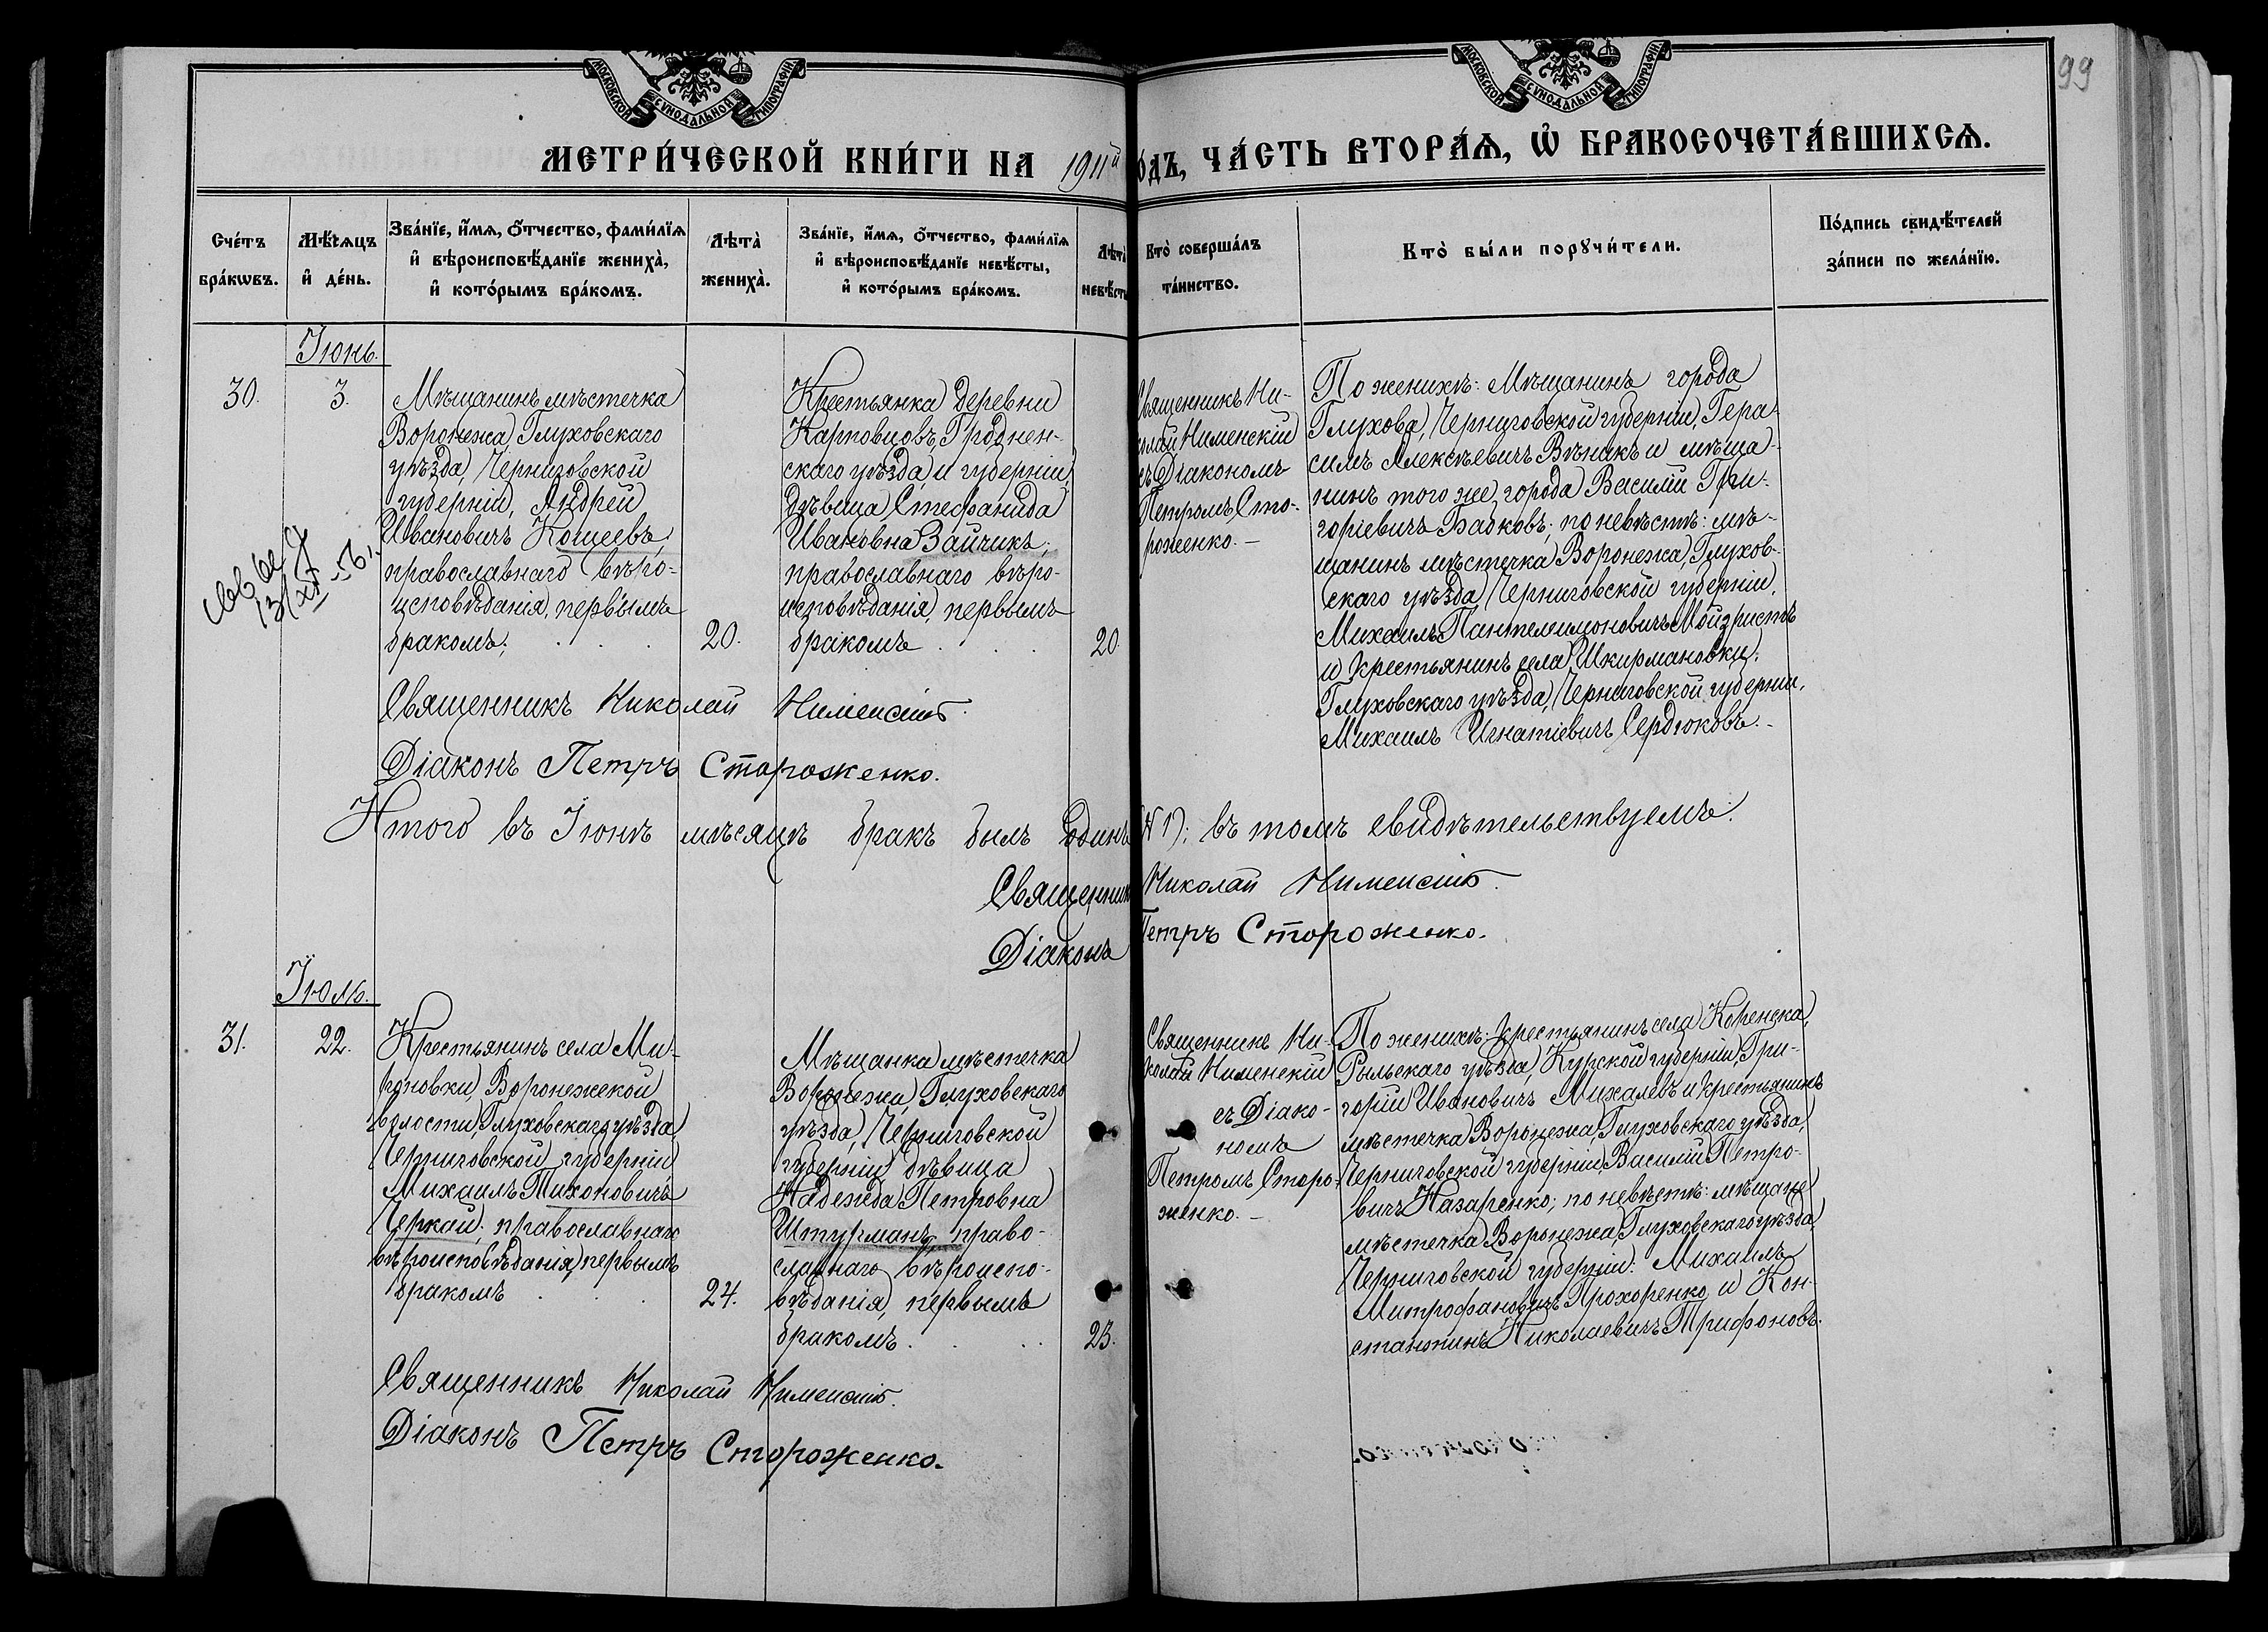 99
МОСКОВСКОЙ СѴНОДАЛЬНОЙ ТИПОГРАФІИ
МОСКОВСКОЙ СѴНОДАЛЬНОЙ ТИПОГРАФІИ
МЕТРИ́ЧЕСКОЙ КНИ́ГИ НА 1911й
ОДЪ, ЧА́СТЬ ВТОРА́Ѧ, Ѽ БРАКОСОЧЕТА́ВШИХСѦ.
Сче́тъ
бра́кѡвъ.
Мѣ́сѧцъ
и҆ де́нь.
Зва́нїе, и҆́мѧ, ѻ҆́тчество, фами́лїѧ
и҆ вѣроисповѣ́данїе жениха̀,
и҆ кото́рымъ бра́комъ.
Лѣта̀
жениха̀.
Зва́нїе, и҆́мѧ, ѻ҆́тчество, фами́лїѧ
и҆ вѣроисповѣ́данїе невѣ́сты,
и҆ кото́рымъ бра́комъ.
Лѣта̀
невѣ́сты
Кто̀ соверша́лъ
та́инство.
Кто̀ бы́ли порꙋчи́тели.
По́дпись свидѣ́телей
за́писи по жела́нїю.
Іюнь.
30.
3.
Мѣщанинъ мѣстечка
Воронежа, Глуховскаго
уѣзда, Черниговской
губерніи, Андрей
Ивановичъ Кощеевъ,
православнаго вѣро-
исповѣданія, первымъ
бракомъ;
20.
Крестьянка деревни
Карповцовъ, Гроднен-
скаго уѣзда и губерніи,
дѣвица Стефанида
Ивановна Зайчикъ,
православнаго вѣро-
исповѣданія, первымъ
бракомъ
20
Священникъ Ни-
колай Нименскій
съ Діакономъ
Петромъ Сто-
роженко. —
По женихѣ: Мѣщанинъ города
Глухова, Черниговской губерніи, Гера-
симъ Алексѣевичъ Вѣникъ и мѣща-
нинъ того же города Василій Гри-
горіевичъ Бабковъ; по невѣстѣ: мѣ-
щанинъ мѣстечка Воронежа, Глухов-
скаго уѣзда Черниговской губерніи,
Михаилъ Пантелимоновичъ
и крестьянинъ села Шкирмановки,
Глуховскаго уѣзда, Черниговской губерніи,
Михаилъ Игнатіевичъ Сердюковъ. –
13/XI–56.
Священникъ Николай Нименскій
Діаконъ Петръ Стороженко.
Итого въ Іюнѣ мѣсяцѣ бракъ былъ одинъ (№ 1); въ томъ свидѣтельствуемъ:
Священникъ Николай Нименскій.
Діаконъ Петръ Стороженко.
Іюль.
31.
22.
Крестьянинъ села Ми-
роновки, Воронежской
волости, Глуховскаго уѣзда,
Черниговской губерніи
Михаилъ Тихоновичъ
Черкай, православнаго
вѣроисповѣданія, первымъ
бракомъ
24.
Мѣщанка мѣстечка
Воронежа, Глуховскаго
уѣзда, Черниговской
губерніи, дѣвица
Надежда Петровна
Штурманъ, право-
славнаго вѣроиспо-
вѣданія, первымъ
бракомъ.
23.
Священникъ Ни-
колай Нименскій
съ Діако-
номъ
Петромъ Сторо-
женко. —
По женихѣ: крестьянинъ села Коренска,
Рыльскаго уѣзда, Курской губерніи, Гри-
горій Ивановичъ Михалевъ и крестьянинъ
мѣстечка Воронежа, Глуховскаго уѣзда,
Черниговской губерніи, Василій Петро-
вичъ Назаренко; по невѣстѣ: мѣщане
мѣстечка Воронежа, Глуховскаго уѣзда,
Черниговской губерніи: Михаилъ
Митрофановичъ Прохоренко и Кон-
стантинъ Николаевичъ Трифоновъ.
Священникъ Николай Нименскій.
Діаконъ Петръ Стороженко.